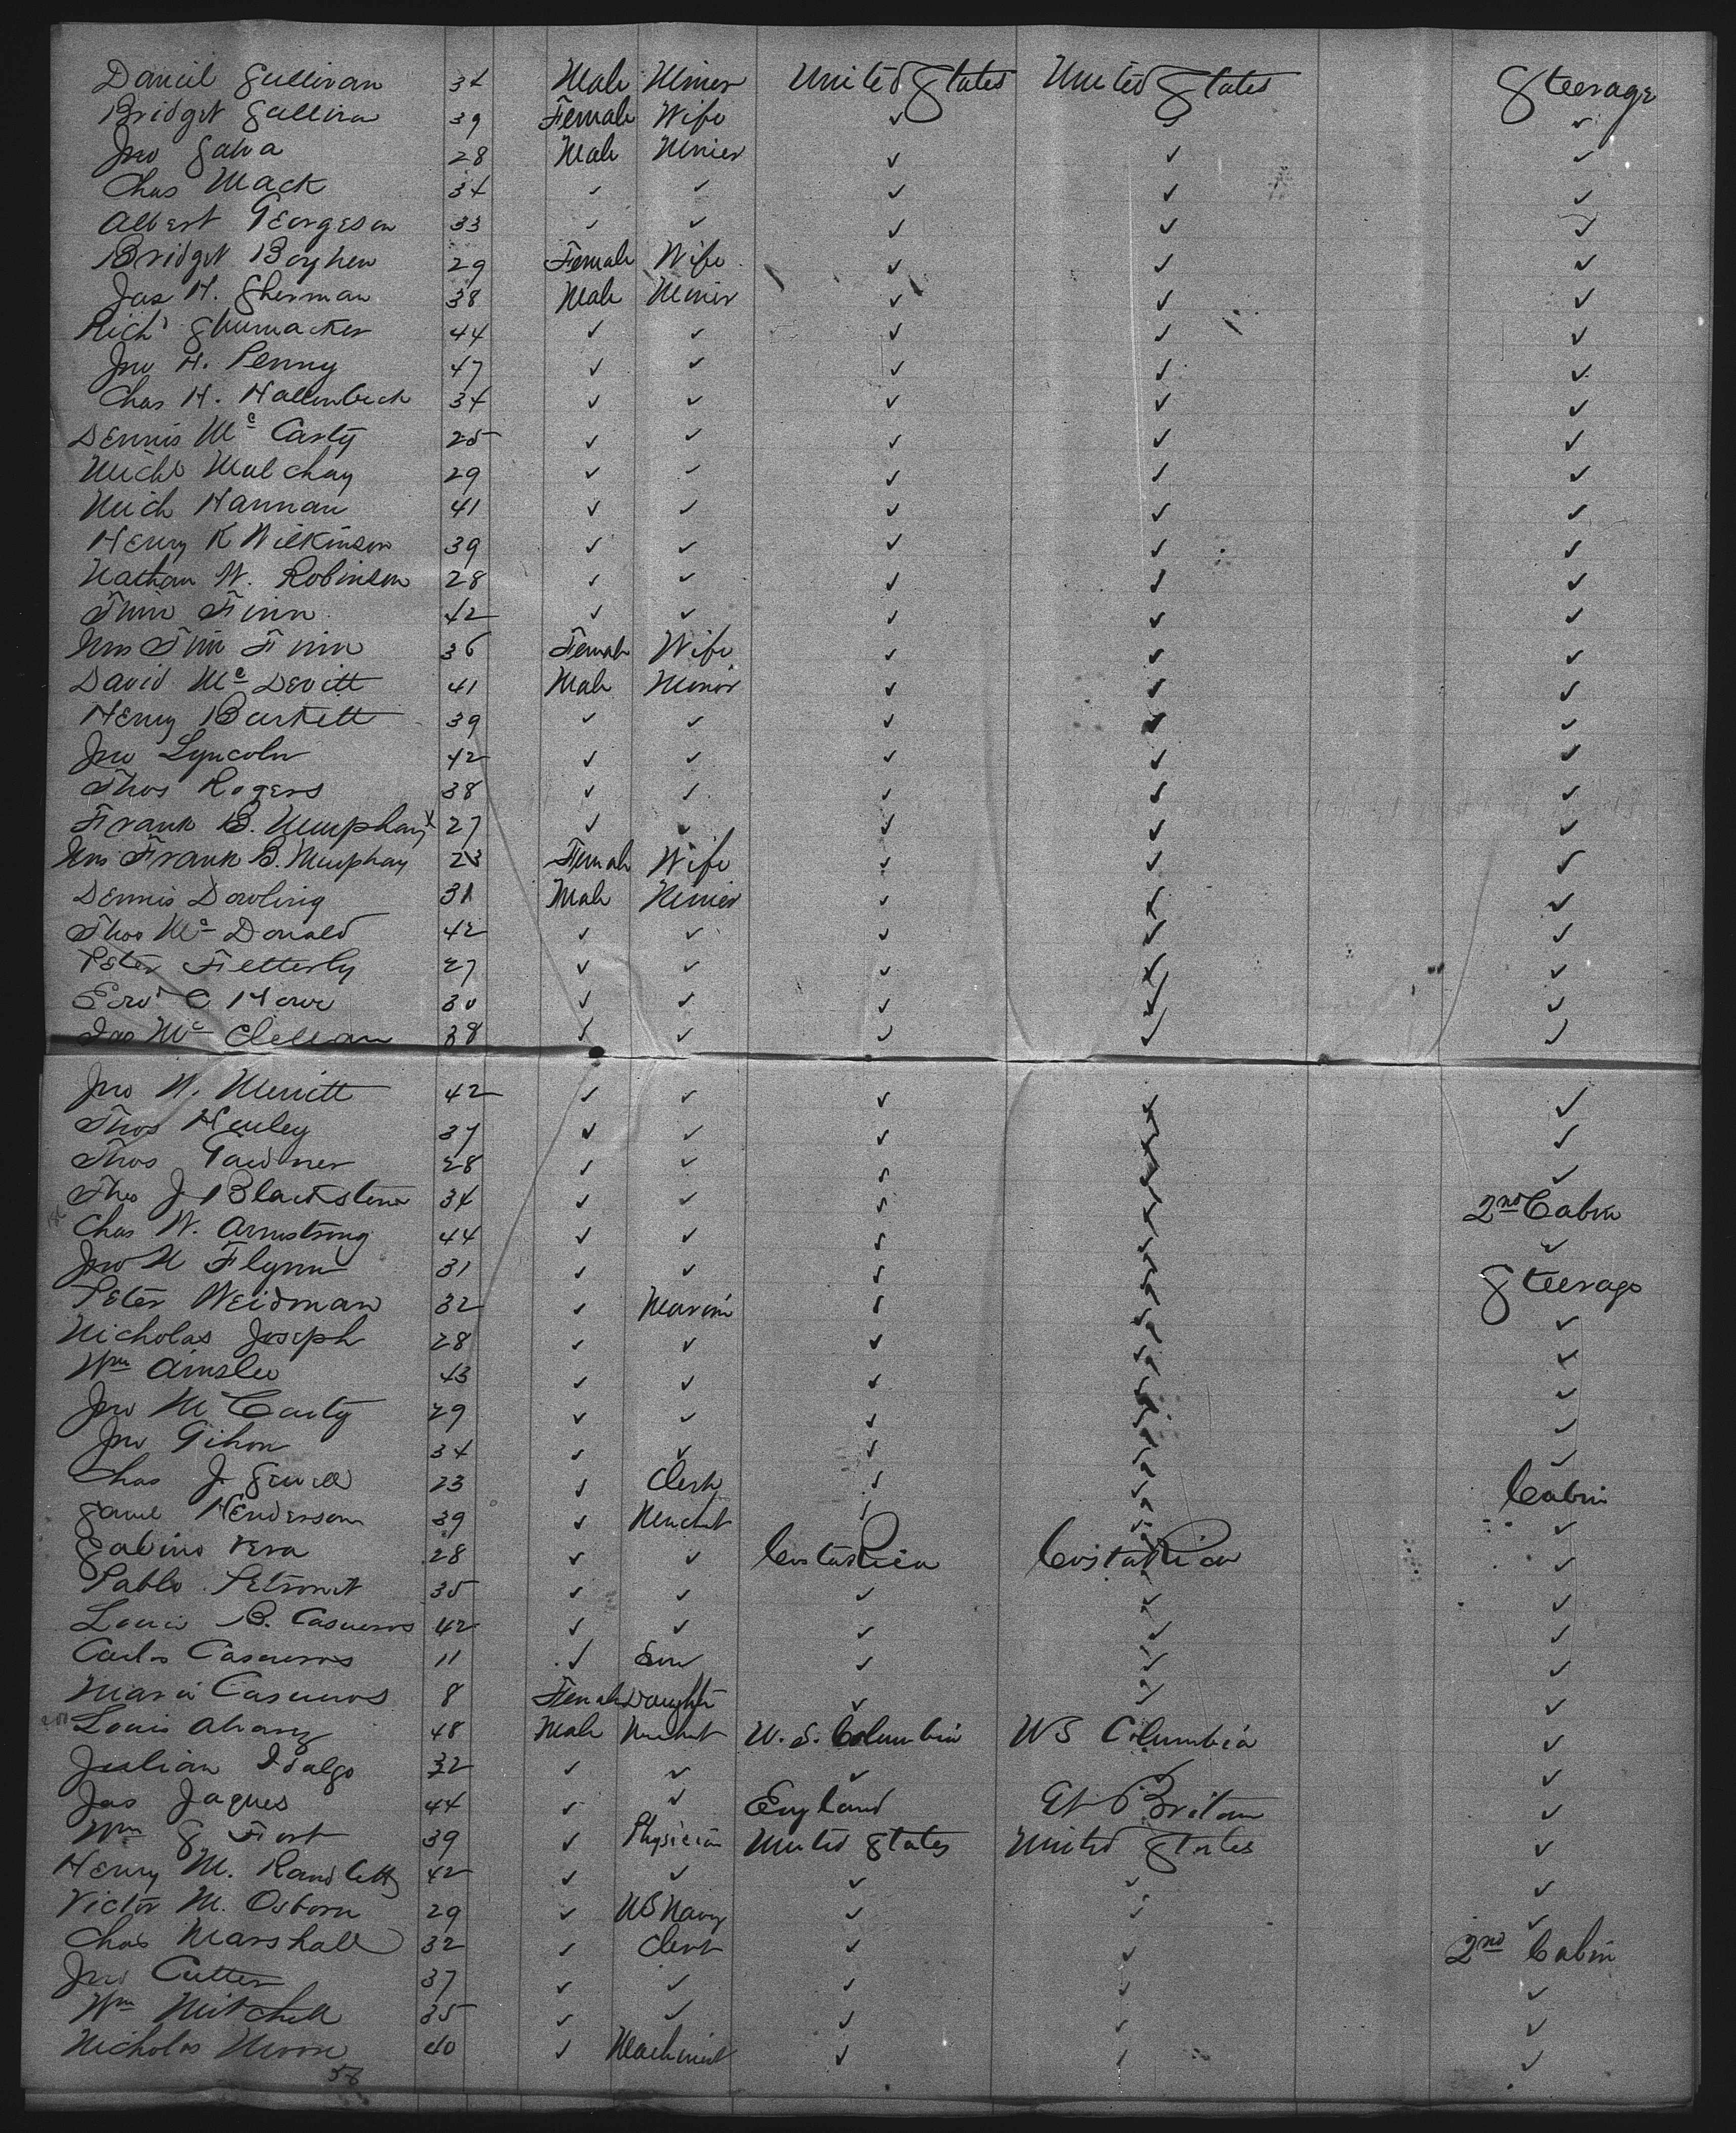 Daniel Sullivan 34 Male Miner United States United States Steerage
Bridget Sullivan 39 Female Wife ✓ ✓ ✓
Jno Galva 28 Male Miner ✓ ✓ ✓
Chas Mack 34 ✓ ✓ ✓ ✓ ✓
Albert Georgeson 33 ✓ ✓ ✓ ✓ ✓
Bridget Boyhen 29 Female Wife ✓ ✓ ✓
Jas H. Sherman 38 Male Miner ✓ ✓ ✓
Richd Shumacker 44 ✓ ✓ ✓ ✓ ✓
Jno H. Penny 47 ✓ ✓ ✓ ✓ ✓
Chas H. Hallenbeck 34 ✓ ✓ ✓ ✓ ✓
Dennis Mc Carty 25 ✓ ✓ ✓ ✓ ✓
Michl Mulchay 29 ✓ ✓ ✓ ✓ ✓
Mich Hannan 41 ✓ ✓ ✓ ✓ ✓
Henry K Wilkinson 39 ✓ ✓ ✓ ✓ ✓
Nathan W. Robinson 28 ✓ ✓ ✓ ✓ ✓
Tim Finn 42 ✓ ✓ ✓ ✓ ✓
Mrs Tim Finn 36 Female Wife ✓ ✓ ✓
David Mc Devitt 41 Male Miner ✓ ✓ ✓
Henry Bartlett 39 ✓ ✓ ✓ ✓ ✓
Jno Lyncoln 42 ✓ ✓ ✓ ✓ ✓
Thos Rogers 38 ✓ ✓ ✓ ✓ ✓
Frank B. Murphay 27 ✓ ✓ ✓ ✓ ✓
Mrs Frank B. Murphay 23 Female Wife ✓ ✓ ✓
Dennis Dowling 31 Male Miner ✓ ✓ ✓
Thos Mc Donald 42 ✓ ✓ ✓ ✓ ✓
Peter Fetterly 27 ✓ ✓ ✓ ✓ ✓
Edwd C Howe 30 ✓ ✓ ✓ ✓ ✓
Jas Mc Clellan 38 ✓ ✓ ✓ ✓ ✓
Jno W. Merritt 42 ✓ ✓ ✓ ✓ ✓
Thos Henley 37 ✓ ✓ ✓ ✓ ✓
Thos Gardner 28 ✓ ✓ ✓ ✓ ✓
Thos J Blackstone 34 ✓ ✓ ✓ ✓ 2nd Cabin
Chas W. Armstrong 44 ✓ ✓ ✓ ✓ ✓
Jno M Flynn 31 ✓ ✓ ✓ ✓ Steerage
Peter Weidman 32 ✓ Marine ✓ ✓ ✓
Nicholas Joseph 28 ✓ ✓ ✓ ✓ ✓
Wm Ainslee 43 ✓ ✓ ✓ ✓ ✓
Jno M Carty 29 ✓ ✓ ✓ ✓ ✓
Jno Gihon 34 ✓ ✓ ✓ ✓ ✓
Chas J. Sewell 23 ✓ Clerk ✓ ✓ Cabin
Saml Henderson 39 ✓ Merchat ✓ ✓ ✓
Sabino Vera 28 ✓ ✓ Costa Rica Costa Rica ✓
Pablo 35 ✓ ✓ ✓ ✓ ✓
Louis B. Casneros 42 ✓ ✓ ✓ ✓ ✓
Carlos Casneros 11 ✓ Son ✓ ✓ ✓
Maria Casneros 8 Female Daughter ✓ ✓ ✓
Louis Alvarez 48 Male Merchat U. S. Columbia US Columbia ✓
Julian Idalgo 32 ✓ ✓ ✓ ✓ ✓
Jas Jaques 44 ✓ ✓ England Gt Britain ✓
Wm S Fort 39 ✓ Physician United States United States ✓
Henry M. Randlett 42 ✓ ✓ ✓ ✓ ✓
Victor M. Osborn 29 ✓ US Navy ✓ ✓ ✓
Chas Marshall 32 ✓ Clerk ✓ ✓ 2nd Cabin
Jno Cutter 37 ✓ ✓ ✓ ✓ ✓
Wm Mitchell 35 ✓ ✓ ✓ ✓ ✓
Nicholas Moore 40 ✓ Machinist ✓ ✓ ✓
58